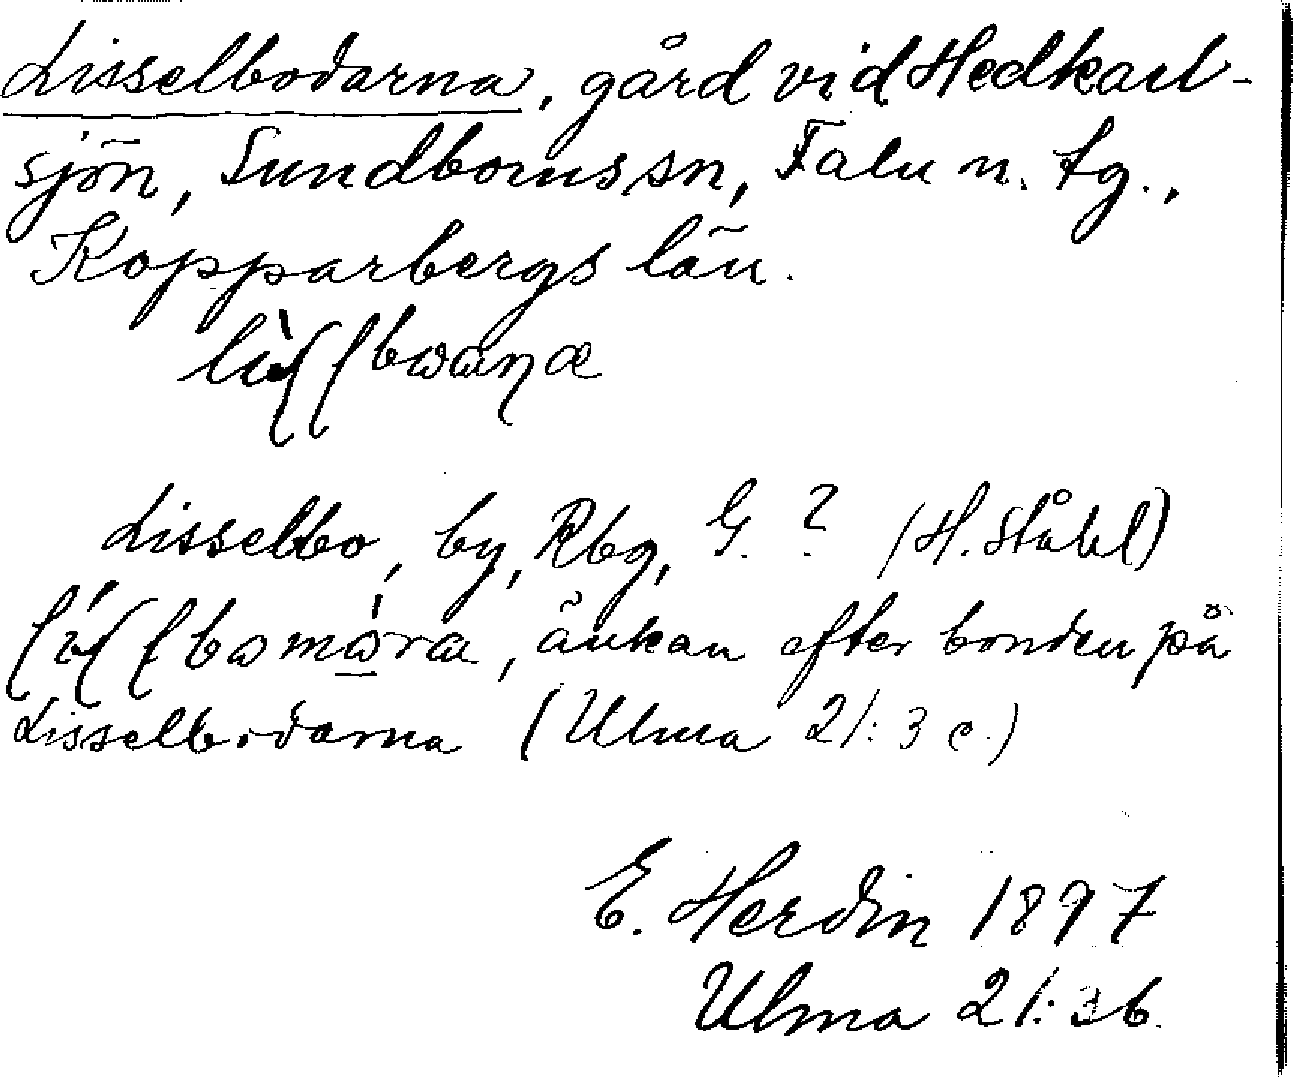 Lisselbodarna, gård vid Hedkarl-
sjön, Sundborns sn, Falu n. tg.,
Kopparbergs län.
Lisselbo, by, Rbg, G. ? (H. Ståhl)
änkan efter bonden på
Lisselbodarna (Ulma 21: 3 c.)
E. Herdin 1897
Ulma 21: 3 b.